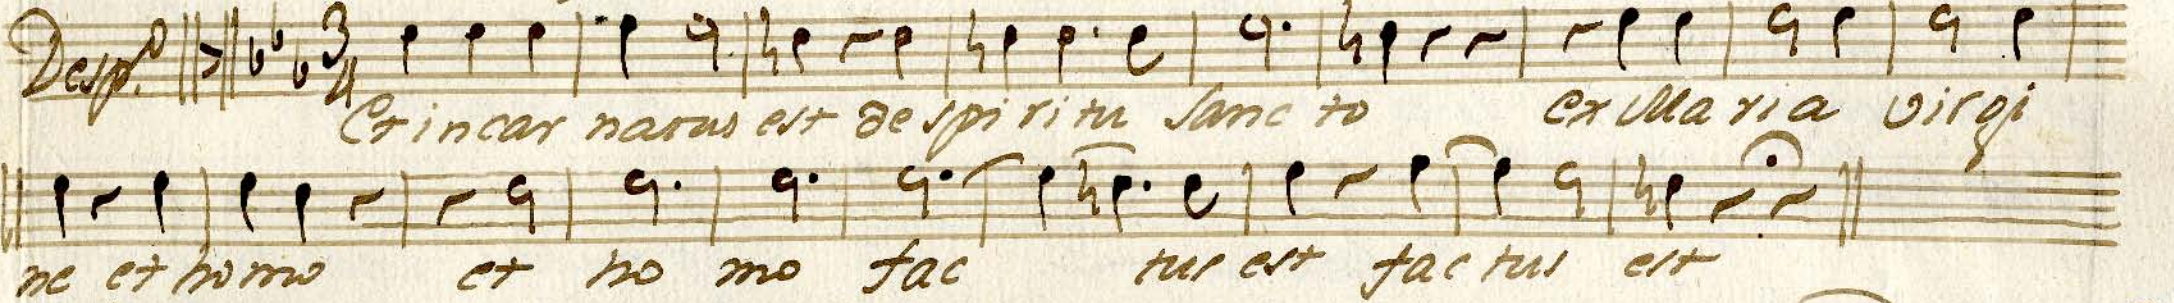 Desp.º 3/4
Et in car natus est de spi ri tu Sanc to ex Ma ria virgi
ne et homo et ho mo fac tus est fac tus est